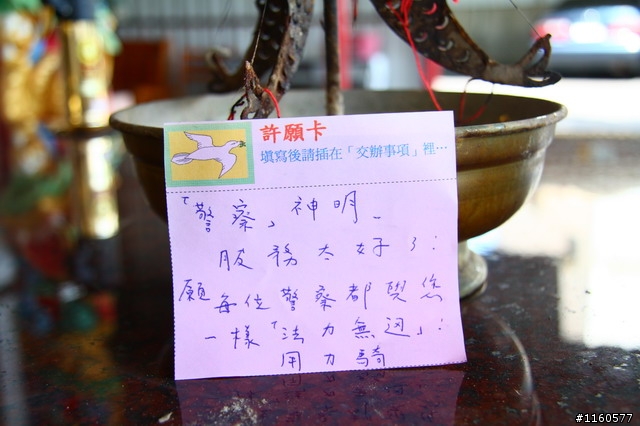 許願卡
填寫後請插在「交辦事項」裡…
「警察」神明、
服務太好了:
願每位警察都與您
一樣「法力無迥」:
用力騎
#1160577